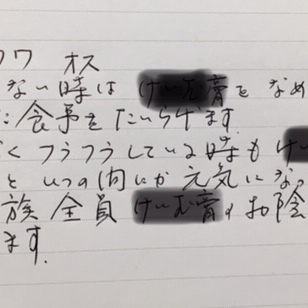 ワワ オス
ない時は をなめ
に食事をたいらげます
くフラフラしている時も
といつの間にか元気になっ
族全員 のお陰
ます.